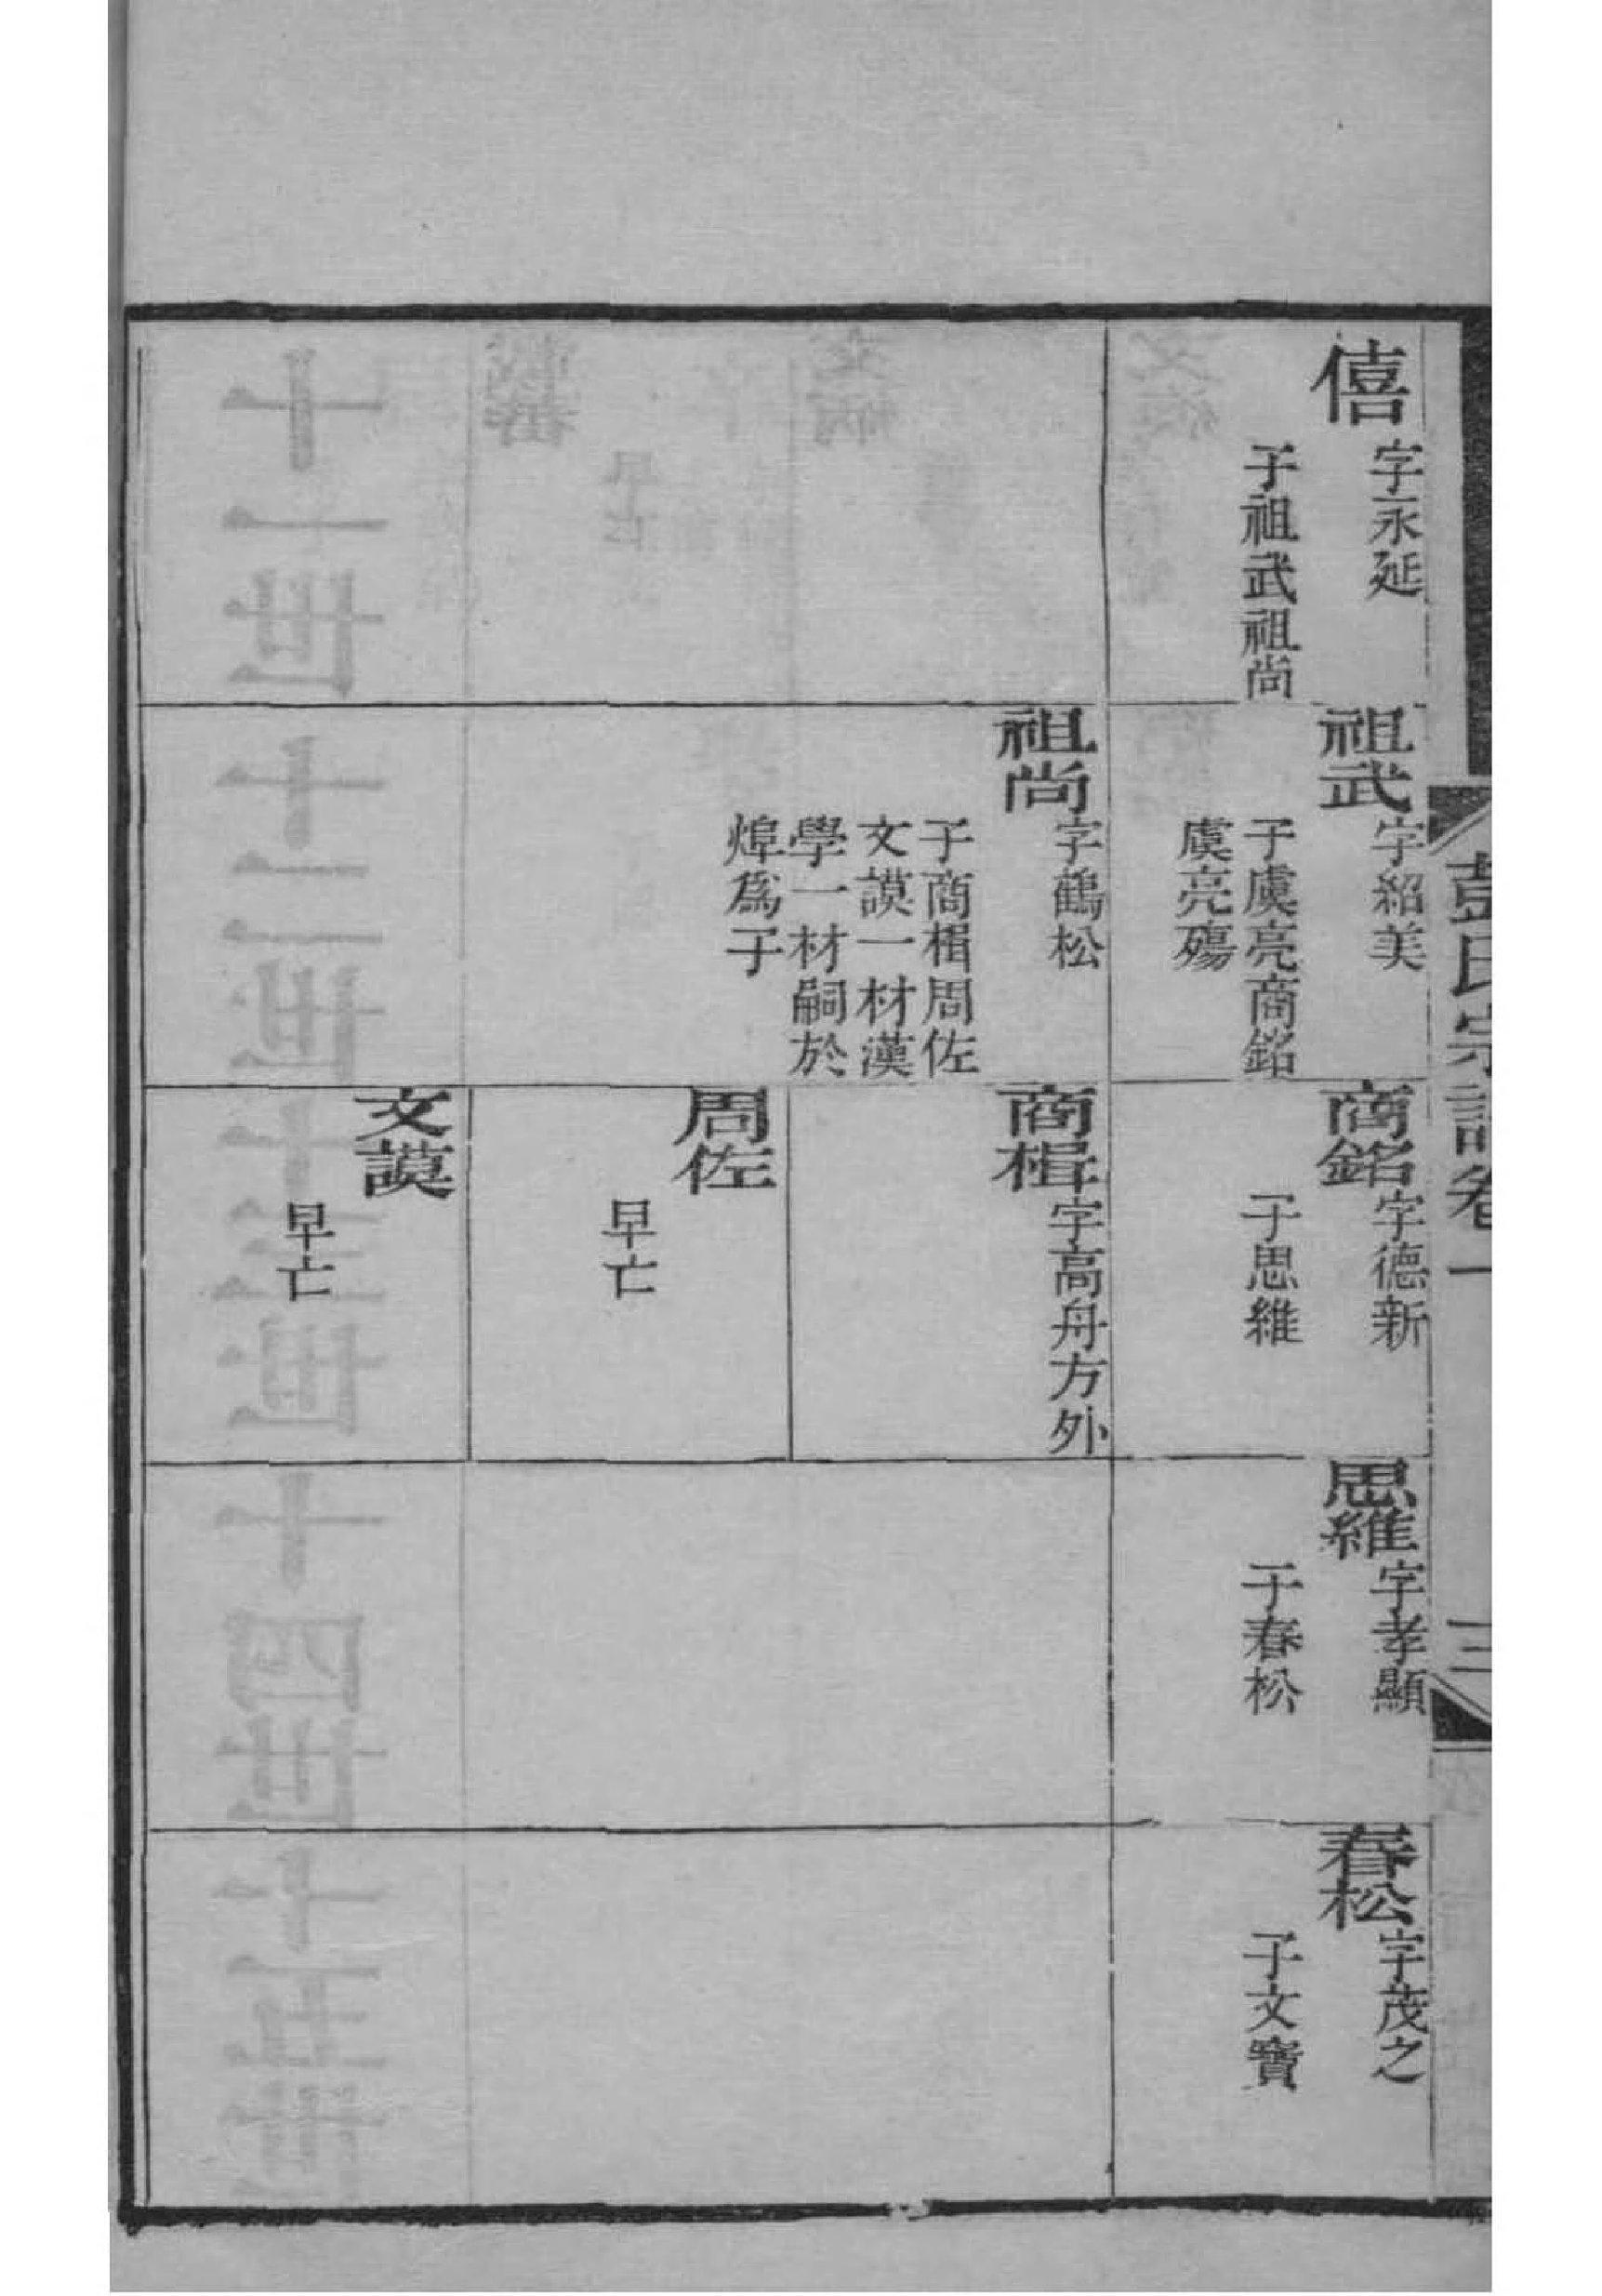 彭氏宗譜卷一
三
僖
字永延
子祖武祖尚
祖武
字紹美
子虞亮商銘
虞亮殤
祖尚
字鶴松
子商楫周佐
文謨一材漢
學一材嗣於
煒爲子
商銘
字德新
子思維
商楫
字高舟方外
周佐
早亡
文謨
早亡
思維
字孝顯
子春松
春松
字茂之
子文寶